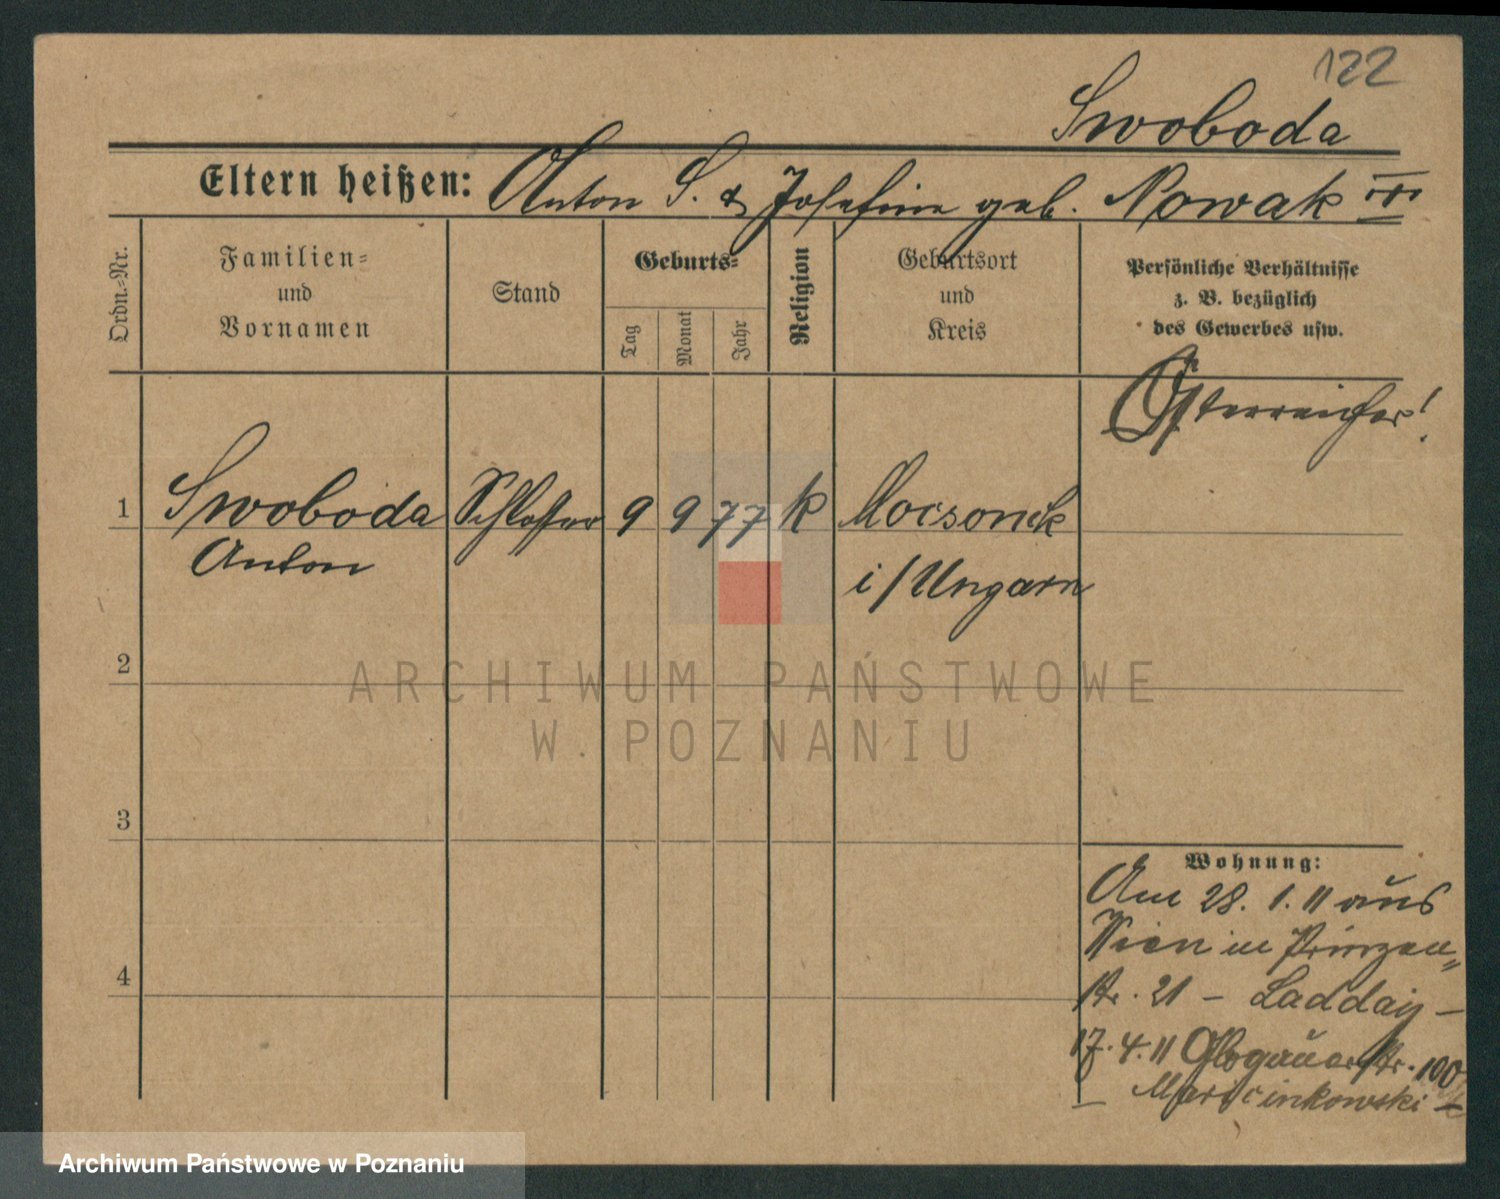 122
Swoboda
Eltern heißen: Anton S. & Josefine geb. Nowak
Ordn.=Nr.
Familien=
und
Vornamen
Stand
Geburts=
Tag
Monat
Jahr
Religion
Geburtsort
und
Kreis
Persönliche Verhältnisse
z. B. bezüglich
des Gewerbes usw.
Österreicher!
1 Swoboda Schlosser 9 9 77 k Mocsonok
Anton i/Ungarn
2
3
4
Wohnung:
Am 28. 1. 11 aus
Wien in Prinzen„
str. 21 – Ladday –
17. 4. 11 Glogauerstr. 100
– Marcinkowski –
ARCHIWUM PAŃSTWOWE
W POZNANIU
Archiwum Państwowe w Poznaniu